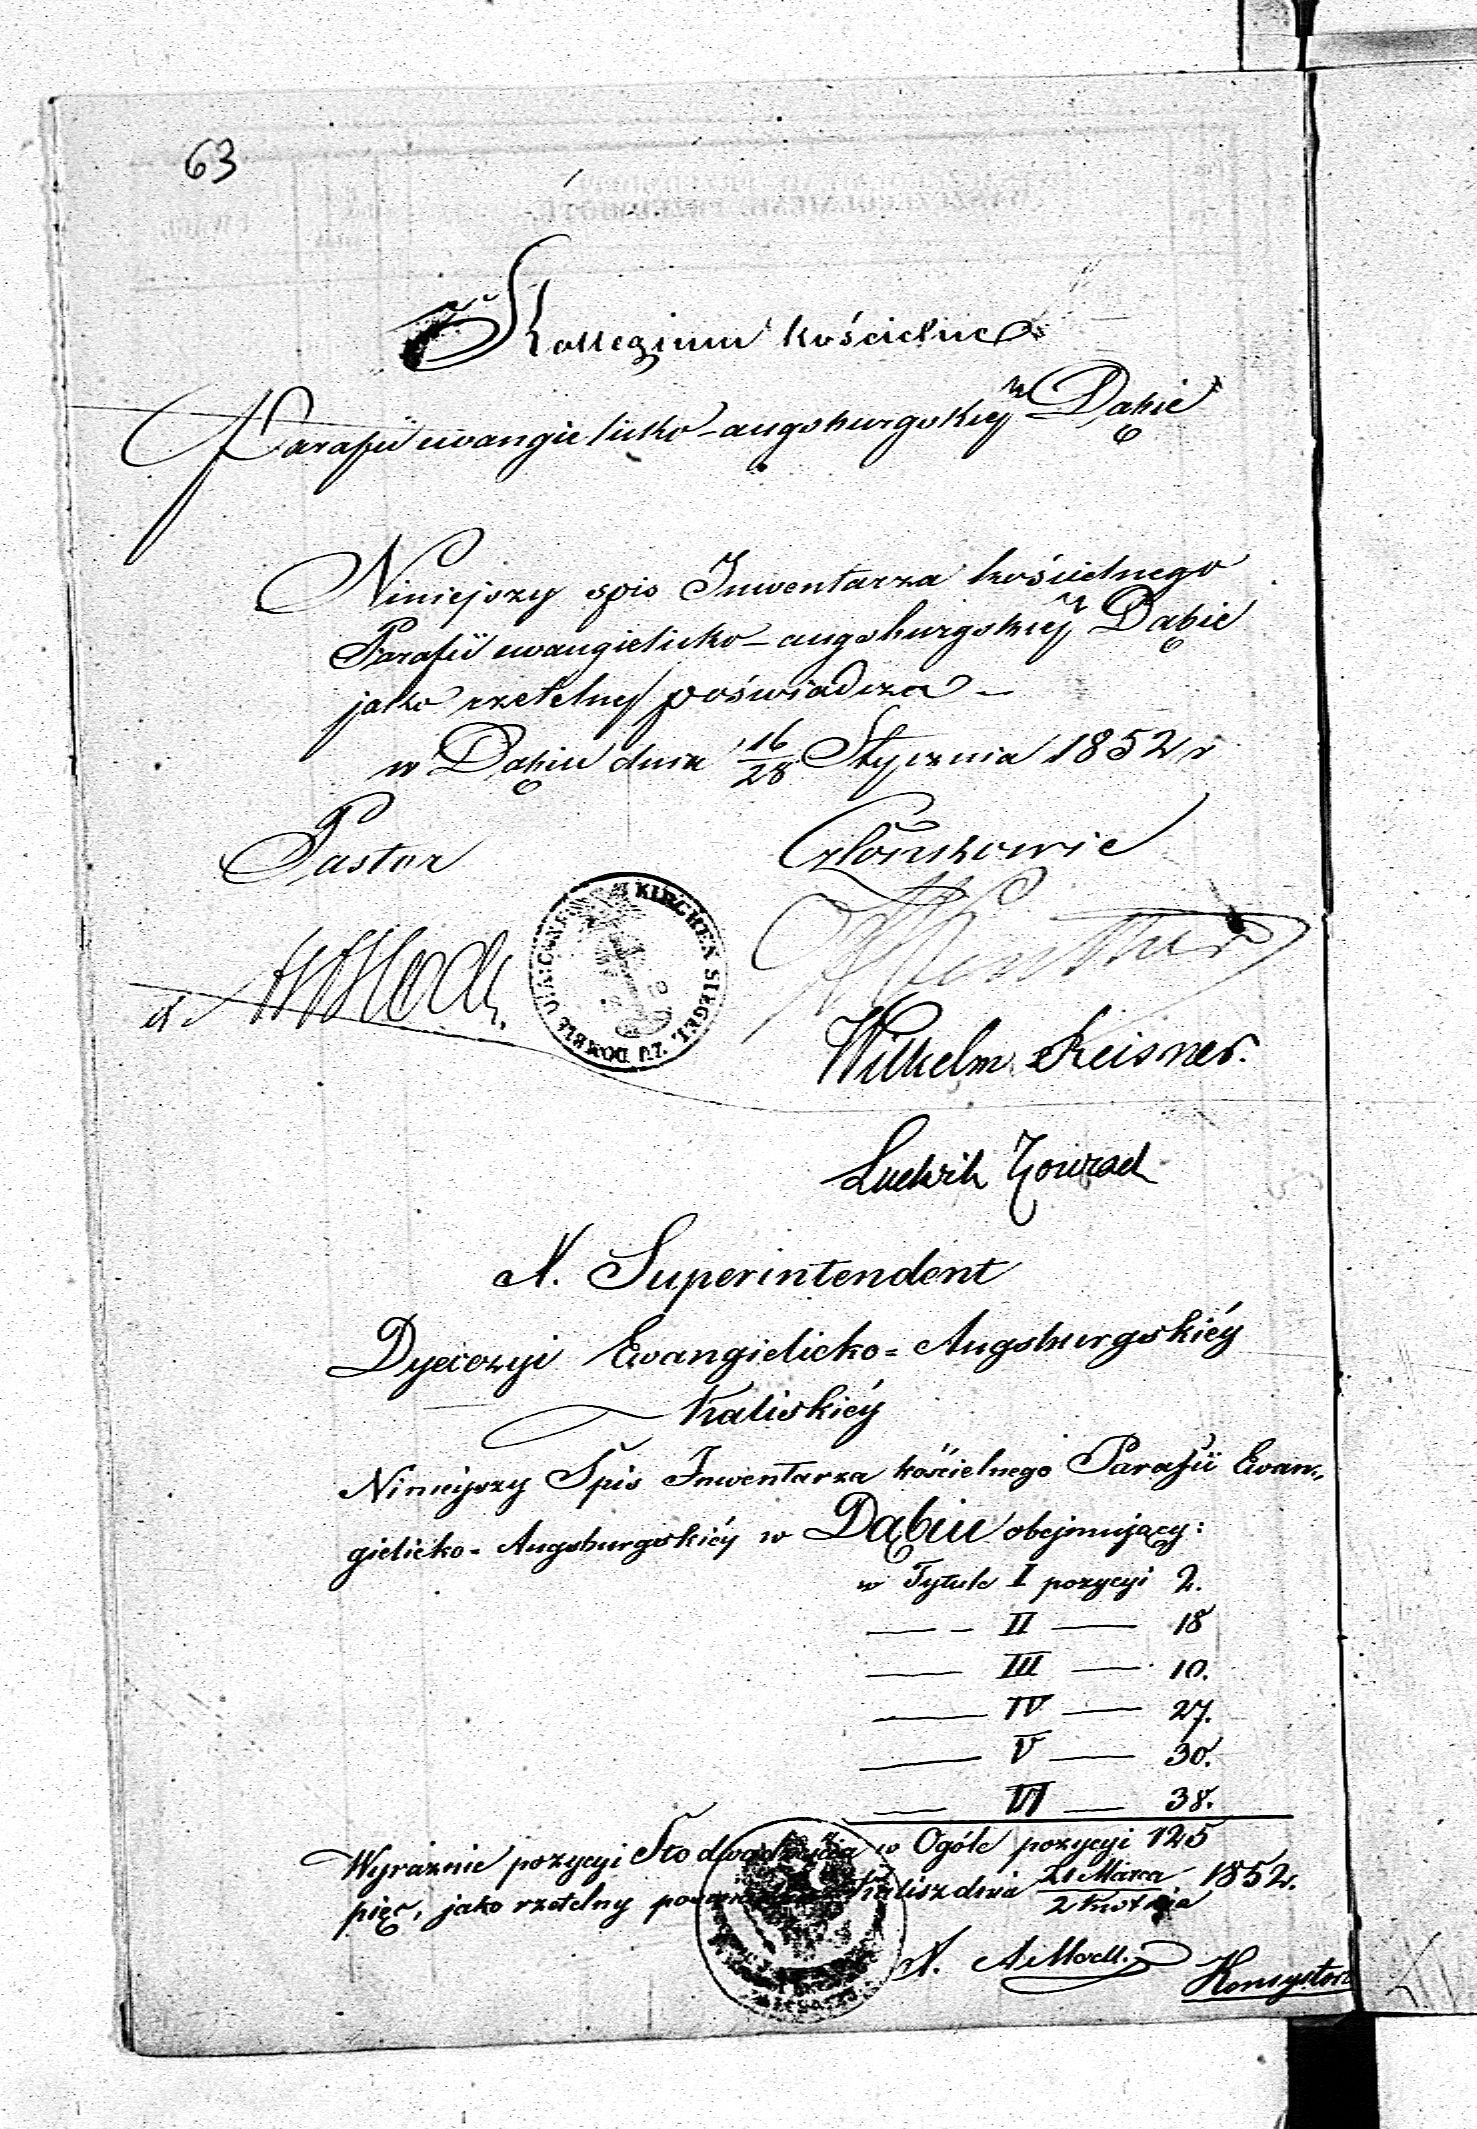 63
Kollegium kościelne
Parafii ewangielicko-augsburgskiej w Dąbie
Niniejszy spis Inwentarza kościelnego
Parafii ewangielicko-augsburgskiej w Dąbie
jako rzetelny poświadcza
w Dąbiu dnia 16/28 Stycznia 1852 r
Pastor Członkowie
KIRCHEN SIEGEL ZU DOMBIE
Wilhelm Reisner.
Ludwik Konrad
N. Superintendent
Dyecezyi Ewangielicko-Augsburgskiéy
Kaliskiéy
Niniejszy Spis Inwentarza kościelnego Parafii Ewan-
gielicko-Augsburgskiéy w Dąbiu obejmujący:
w Tytule I pozycyi 2.
— — II — 18
— III — 10.
— IV — 27.
— V — 30.
— VI — 38.
w Ogóle pozycyi 125
Wyraźnie pozycyi Sto dwadzieścia
pięć, jako rzetelny poświadcza Kalisz dnia 21 Marca/2 Kwietnia 1852 r.
Konsystorz